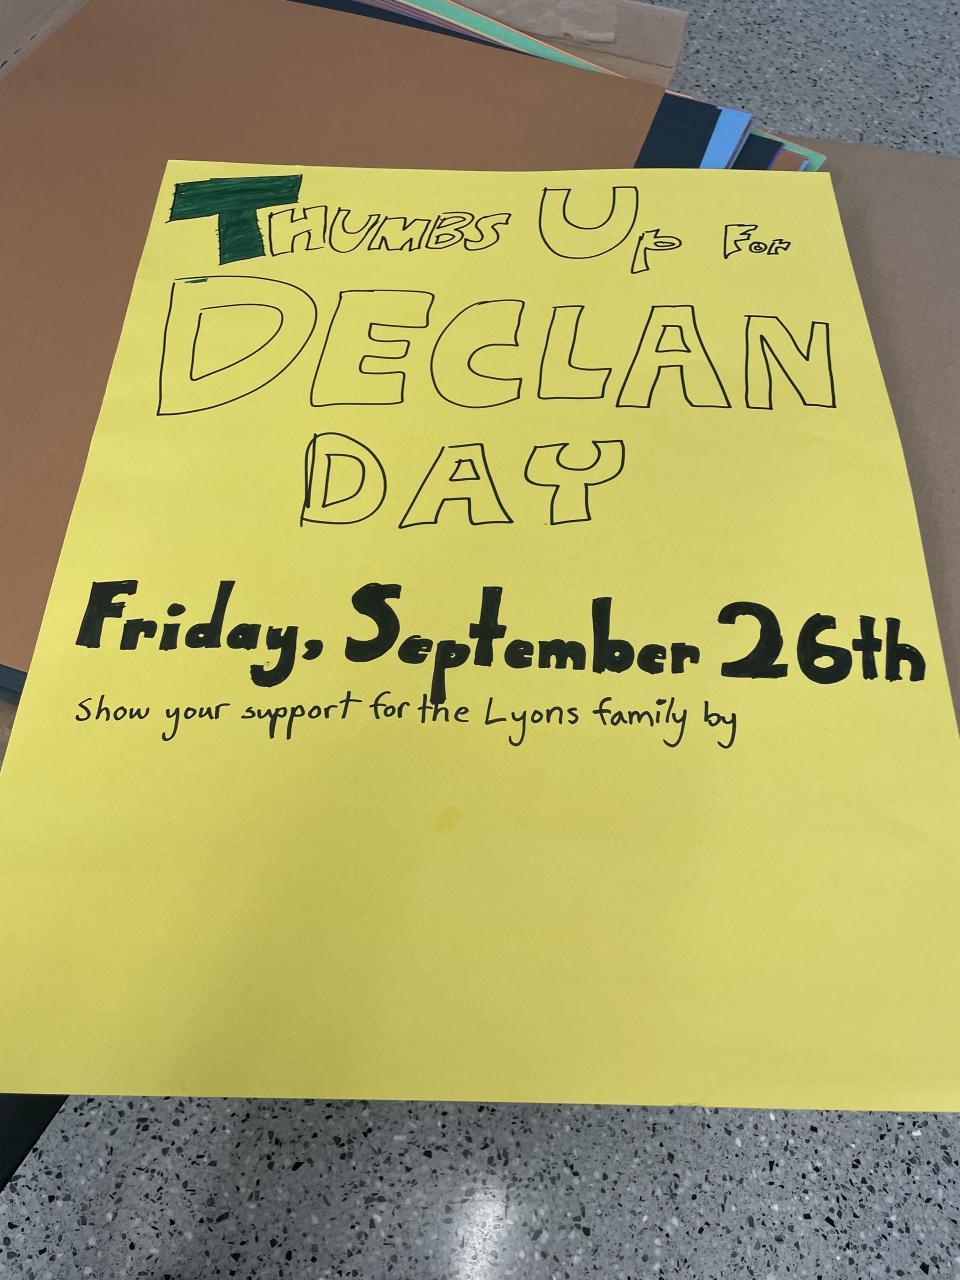 THUMBS UP FOR
DECLAN
DAY
Friday, September 26th
Show your support for the Lyons family by